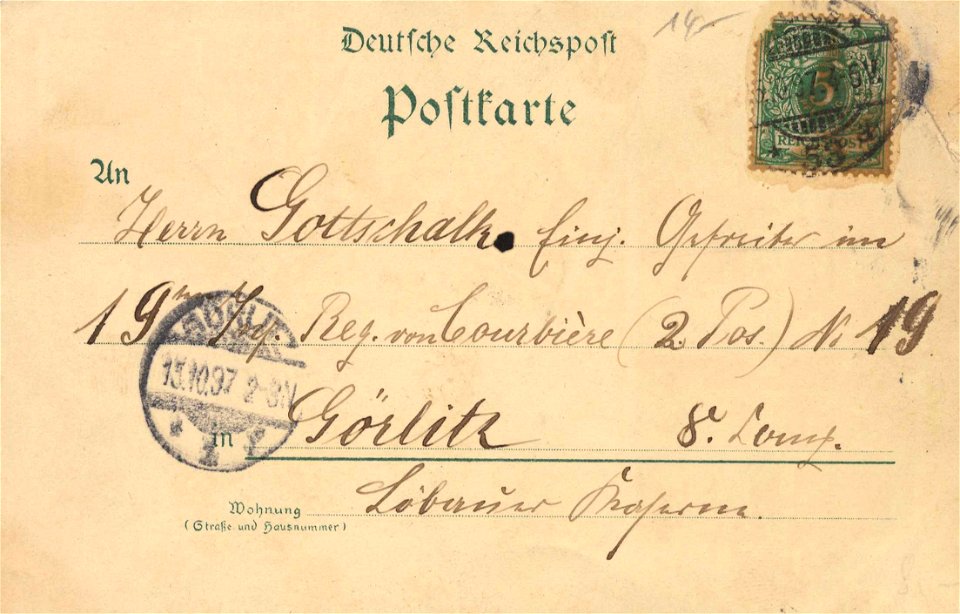 14.-
Deutsche Reichspost
Postkarte
5
REICHSPOST
An
Herrn Gottschalk. Einj. Gefreiter im
19ten Inf. Reg. von Courbière (2. Pos.) No 19
GÖRLITZ
15.10.97 2-3N
1
in Görlitz 8. Comp.
Wohnung Löbauer Kaserne.
(Straße und Hausnummer)